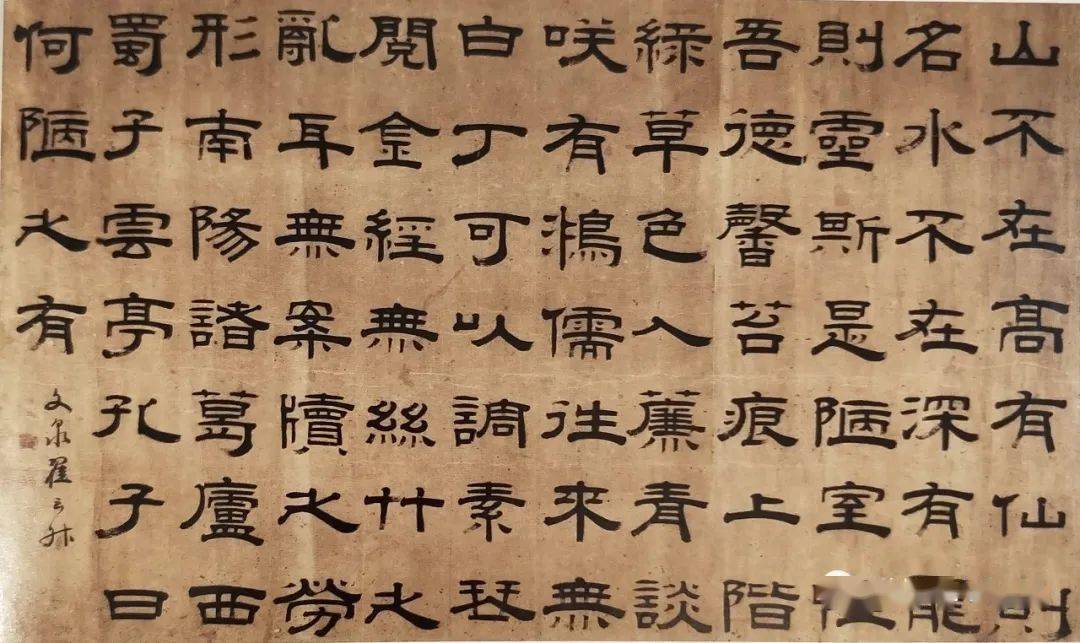 山不在高有仙則
名水不在深有龍
則靈斯是陋室
吾德馨苔痕上階
綠草色入薕青談
咲有鴻儒往來無
白丁可以調素琴
閱金經無絲竹之
亂耳無案牘之勞
形南陽諸葛廬西
蜀子雲亭孔子曰
何陋之有
文泉翟云升